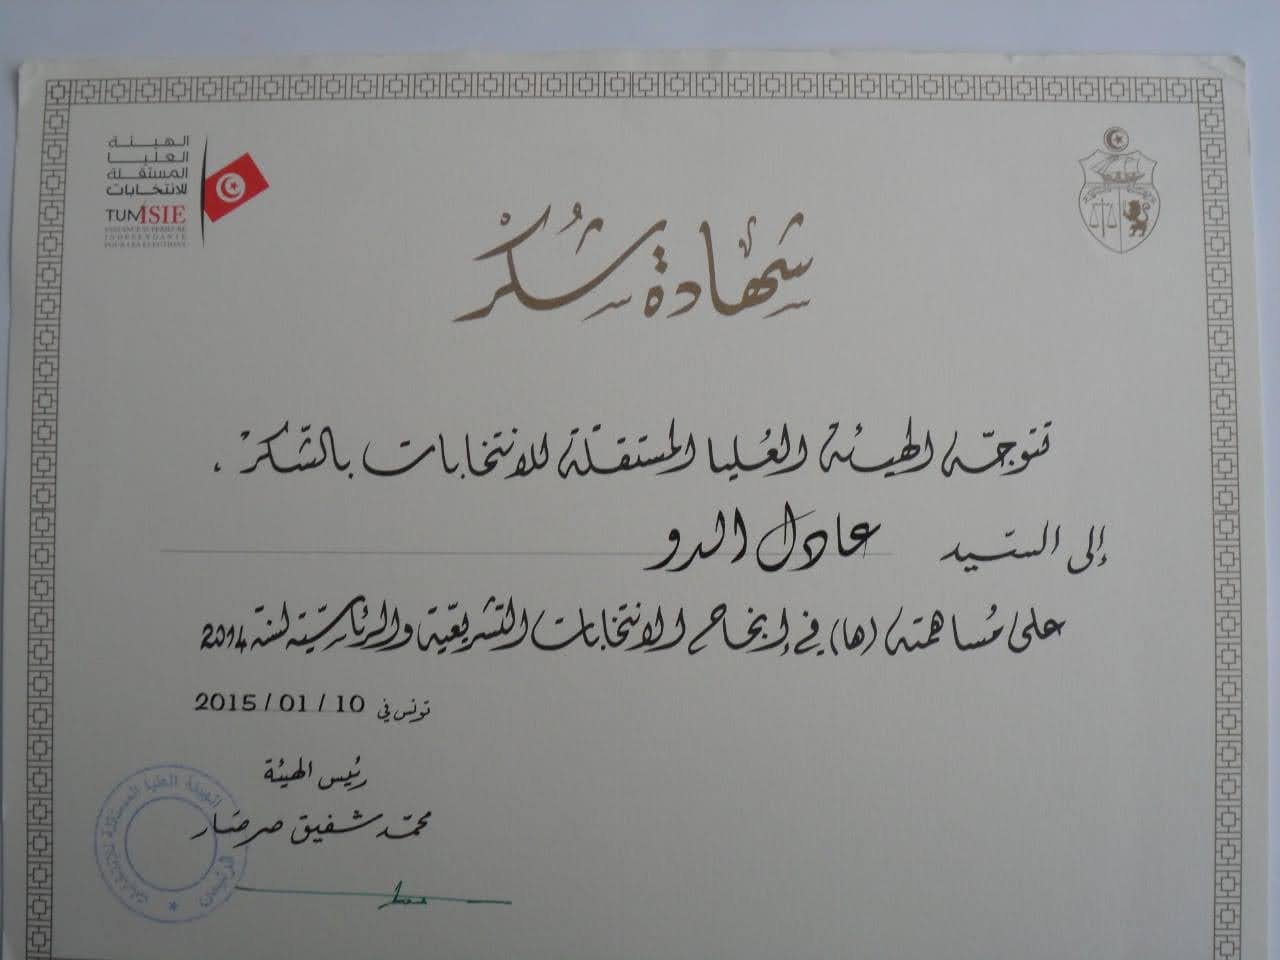 الهيئة
العليا
المستقلة
للانتخابات
TUNISIE
INSTANCE SUPERIEURE
INDEPENDANTE
POUR LES ELECTIONS
شهادة شُكرْ
تتوجّه الهيئة العُليا المستقلّة للانتخابات بالشّكرْ .
إلى السّيد عادل الدو
على مُساهمته (ها) في إنجاح الانتخابات التّشريعيّة والرئاسيّة لسنة 2014
تونس في 10 / 01 / 2015
رئيس الهيئة
محمّد شفيق صرصار
الهيئة العليا المستقلة للانتخابات
الرئيس